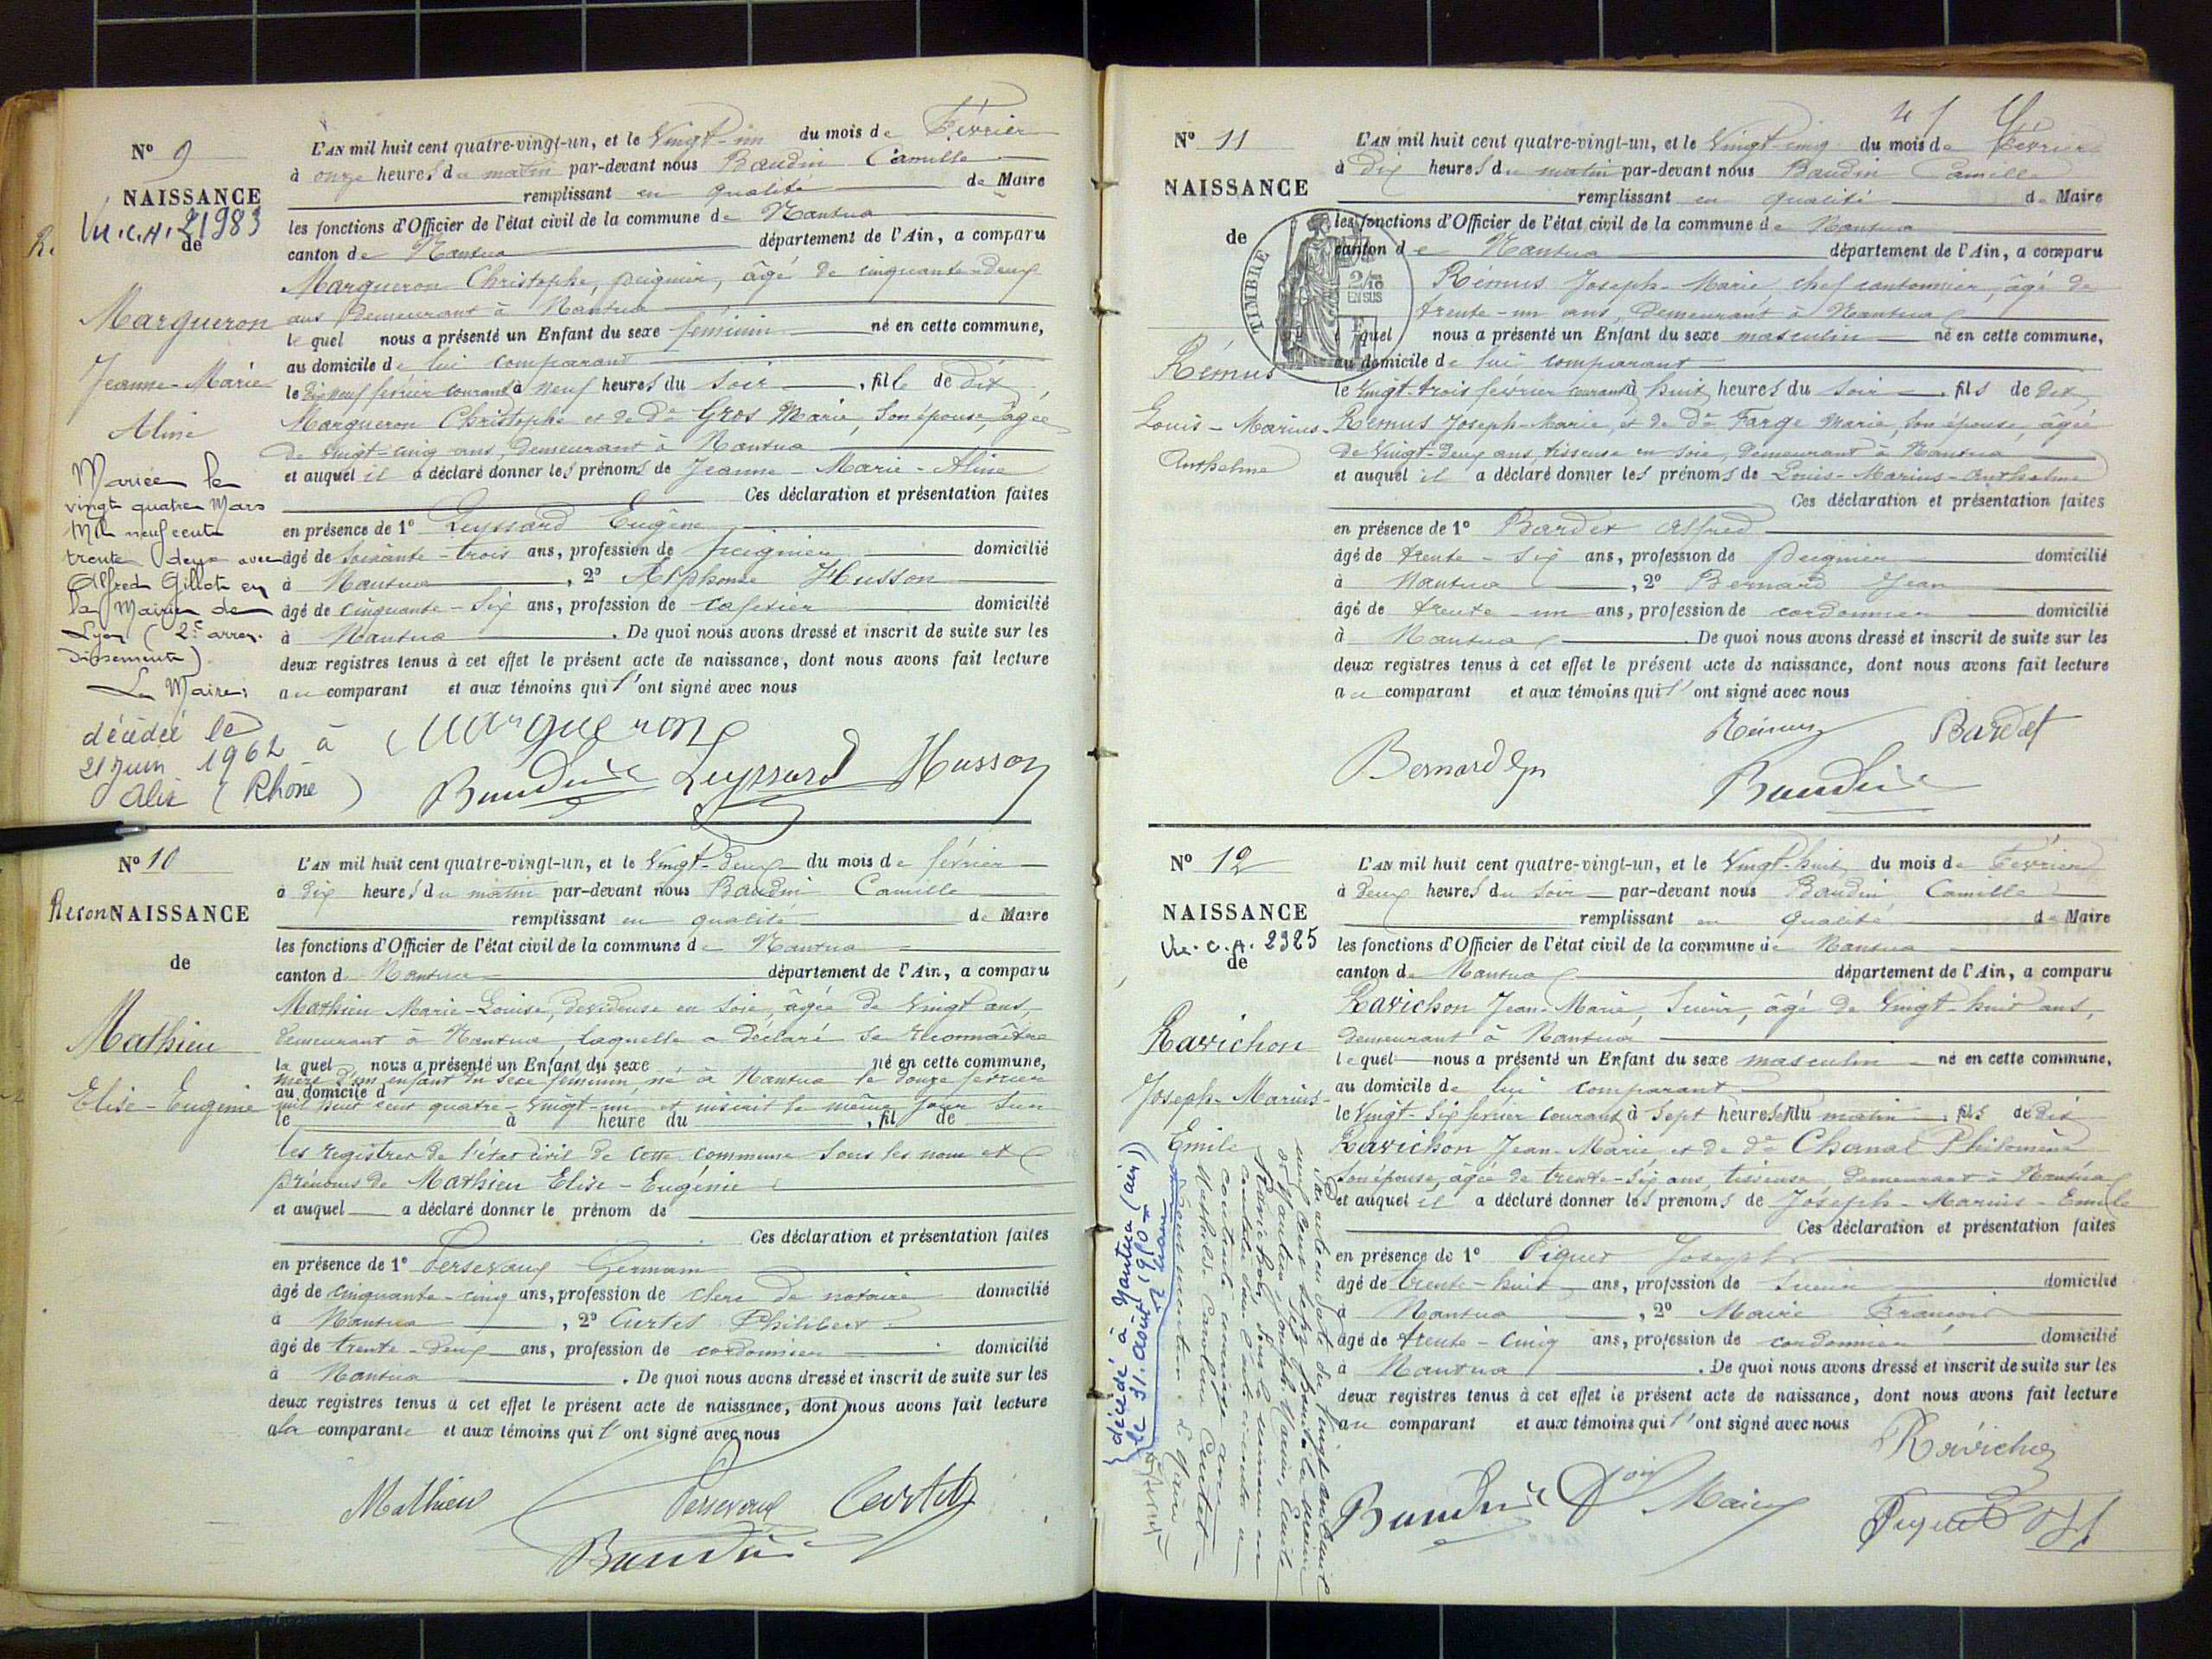 N° 9
NAISSANCE
Vu.C.H. 21983
de
Margueron
Jeanne-Marie
Aline
Mariée le
vingt quatre Mars
Mil neuf cent
trente deux avec
Alfred Gillot en
la Mairie de
Lyon (2e arron-
dissement)
Le Maire,
décédée le
21 Juin 1962 à
Alix (Rhône)
L'AN mil huit cent quatre-vingt-un, et le Vingt-un du mois de Février
à onze heures du matin par-devant nous Baudin Camille
remplissant en qualité de Maire
les fonctions d'Officier de l'état civil de la commune de Nantua
canton de Nantua département de l'Ain, a comparu
Margueron Christophe, peignier, âgé de cinquante-deux
ans demeurant à Nantua
le quel nous a présenté un Enfant du sexe féminin né en cette commune,
au domicile de lui comparant
le dix neuf février courant à neuf heures du soir, fille de dit
Margueron Christophe et de De Gros Marie, son épouse, âgée
de vingt-cinq ans, demeurant à Nantua
et auquel il a déclaré donner les prénoms de Jeanne-Marie-Aline
Ces déclaration et présentation faites
en présence de 1° Leyssard Eugène
âgé de soixante-trois ans, profession de peignier domicilié
à Nantua, 2° Alphonse Husson
âgé de cinquante-six ans, profession de cafetier domicilié
à Nantua. De quoi nous avons dressé et inscrit de suite sur les
deux registres tenus à cet effet le présent acte de naissance, dont nous avons fait lecture
au comparant et aux témoins qui l'ont signé avec nous
Margueron
Baudin Leyssard Husson
N° 10
ReconNAISSANCE
de
Mathieu
Elise-Eugénie
L'AN mil huit cent quatre-vingt-un, et le Vingt-deux du mois de février
à dix heures du matin par-devant nous Baudin Camille
remplissant en qualité de Maire
les fonctions d'Officier de l'état civil de la commune de Nantua
canton de Nantua département de l'Ain, a comparu
Mathieu Marie-Louise, dévideuse en soie, âgée de Vingt ans,
demeurant à Nantua, laquelle a déclaré se reconnaître
la quel nous a présenté un Enfant du sexe né en cette commune,
mère d'un enfant du sexe féminin, né à Nantua le douze février
au domicile d
mil huit cent quatre-vingt-un et inscrit le même jour sur
le à heure du , fil de
les registres de l'état civil de cette commune sous les nom et
prénoms de Mathieu Elise-Eugénie
et auquel a déclaré donner le prénom de
Ces déclaration et présentation faites
en présence de 1° Persevaux Germain
âgé de cinquante-cinq ans, profession de clerc de notaire domicilié
à Nantua, 2° Curtet Philibert
âgé de trente-deux ans, profession de cordonnier domicilié
à Nantua. De quoi nous avons dressé et inscrit de suite sur les
deux registres tenus à cet effet le présent acte de naissance, dont nous avons fait lecture
à la comparante et aux témoins qui l'ont signé avec nous
Mathieu Persevaux Curtet
Baudin
N° 11
NAISSANCE
de
TIMBRE
2/10
EN SUS
Rémus
Louis-Marius-
Anthelme
L'AN mil huit cent quatre-vingt-un, et le Vingt-cinq du mois de Février
à Dix heures du matin par-devant nous Baudin Camille
remplissant en qualité de Maire
les fonctions d'Officier de l'état civil de la commune de Nantua
canton de Nantua département de l'Ain, a comparu
Rémus Joseph-Marie, chef cantonnier, âgé de
trente-un ans, demeurant à Nantua
quel nous a présenté un Enfant du sexe masculin né en cette commune,
au domicile de lui comparant
le vingt-trois février courant à huit heures du soir, fils de dit
Rémus Joseph-Marie, et de De Farge Marie, son épouse, âgée
de Vingt-deux ans, tisseuse en soie, demeurant à Nantua
et auquel il a déclaré donner les prénoms de Louis-Marius-Anthelme
Ces déclaration et présentation faites
en présence de 1° Bardet Alfred
âgé de trente-six ans, profession de peignier domicilié
à Nantua, 2° Bernard Jean
âgé de trente-un ans, profession de cordonnier domicilié
à Nantua. De quoi nous avons dressé et inscrit de suite sur les
deux registres tenus à cet effet le présent acte de naissance, dont nous avons fait lecture
au comparant et aux témoins qui l'ont signé avec nous
Rémus Bardet
Bernard
Baudin
N° 12
NAISSANCE
Vu.C.A. 2925
de
Ravichon
Joseph-Marius-
Emile
décédé à Nantua (ain)
le 31 août 1950
L'AN mil huit cent quatre-vingt-un, et le Vingt-huit du mois de Février
à Deux heures du soir par-devant nous Baudin Camille
remplissant en qualité de Maire
les fonctions d'Officier de l'état civil de la commune de Nantua
canton de Nantua département de l'Ain, a comparu
Ravichon Jean-Marie, âgé de Vingt-huit ans,
demeurant à Nantua
lequel nous a présenté un Enfant du sexe masculin né en cette commune,
au domicile de lui comparant
le Vingt-six février courant à sept heures du matin, fils de dit
Ravichon Jean-Marie et de de Chanal Philomène
son épouse, âgée de trente-six ans, tisseuse demeurant à Nantua
et auquel il a déclaré donner les prénoms de Joseph-Marius-Emile
Ces déclaration et présentation faites
en présence de 1° Piquet Joseph
âgé de trente-huit ans, profession de domicilié
à Nantua, 2° Maire François
âgé de trente-cinq ans, profession de cordonnier domicilié
à Nantua. De quoi nous avons dressé et inscrit de suite sur les
deux registres tenus à cet effet le présent acte de naissance, dont nous avons fait lecture
au comparant et aux témoins qui l'ont signé avec nous
Ravichon
Baudin Maire Piquet